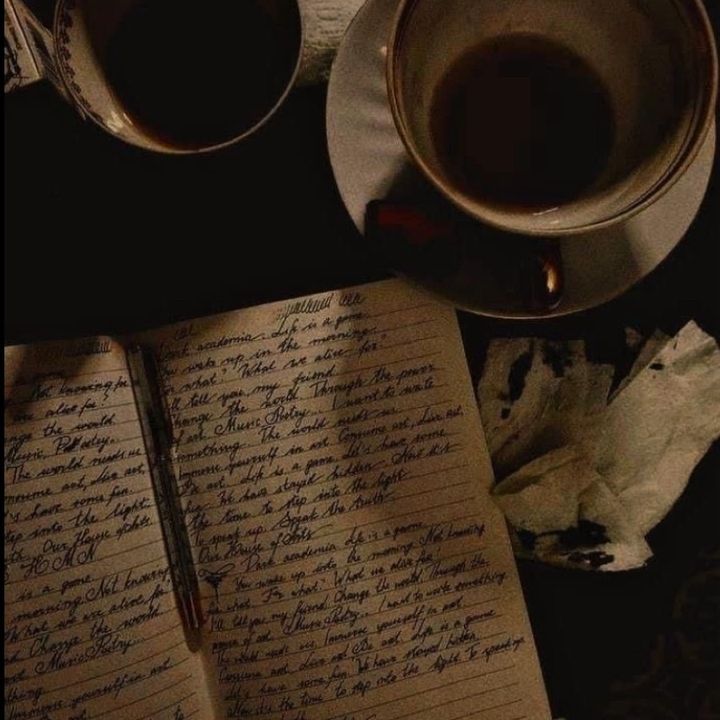 Not knowing for
we are alive for?
change the world
Music, Poetry.
The world needs us
consume art, Live art,
let's have some fun.
step into the light.
Our House of Arts.
H O M N
is a game.
morning. Not knowing
What we are alive for
Change the world.
Music Poetry...
Immerse yourself in art
to
Dark academia. Life is a game.
You wake up in the morning.
For what? What we alive for?
I'll tell you, my friend.
Change the world. Through the power
of art. Music. Poetry... I want to write
something. The world needs us.
Immerse yourself in art. Consume art, Live art,
Be art. Life is a game. Let's have some
fun. We have stayed hidden. Now it's
the time to step into the light.
To speak up. Speak the truth.
Our House of Arts
Dark academia. Life is a game.
You wake up into the morning. Not knowing
for what. For what? What we alive for?
I'll tell you my friend. Change the world. Through the
power of art. Music. Poetry... I want to write something.
The world needs us. Immerse yourself in art.
Consume and Live art. Be Art. Life is a game
Let's have some fun. We have stayed hidden.
Now its the time to step into the light. To speak up